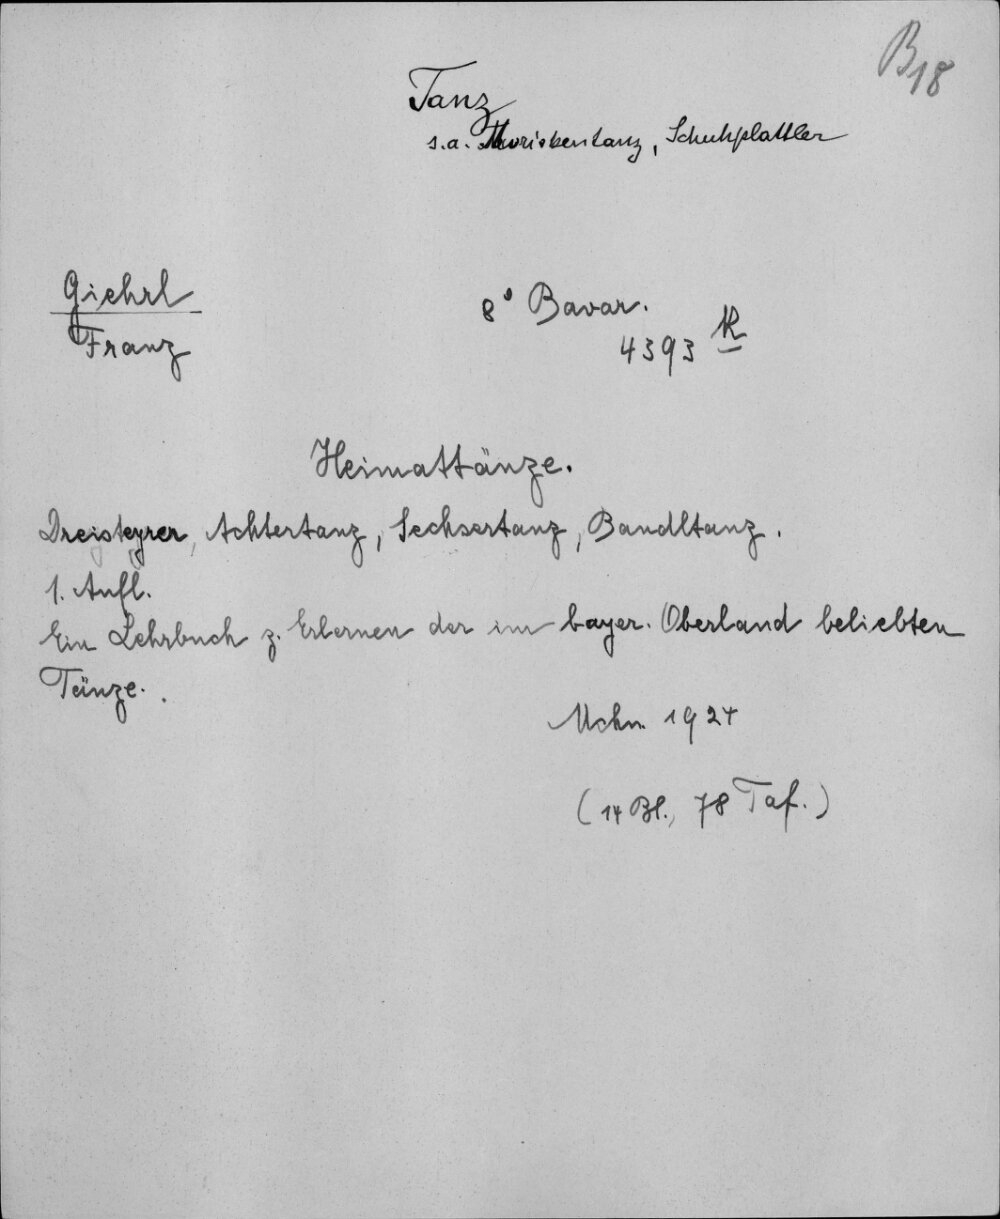 B18
Tanz
s.a. Moriskentanz, Schuhplattler
Giehrl
Franz
8° Bavar.
4393 K
Heimattänze.
Dreisteyrer, Achtertanz, Sechsertanz, Bandltanz.
1. Aufl.
Ein Lehrbuch z. Erlernen der im bayer. Oberland beliebten
Tänze.
Mchn. 1924
(14 Bl., 78 Taf.)